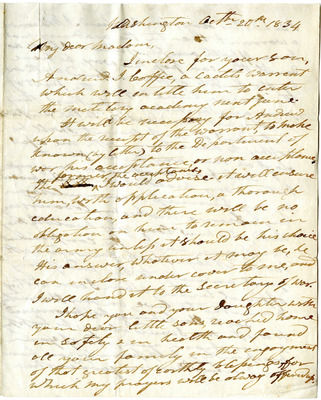 Washington Octbr. 20th. 1834
My dear madam,
I inclose for your son,
Andrew J Coffee, a cadets warrant
which will entitle him to enter
the military academy next June
It will be necessary for Andrew
upon the receipt of the warrant, to make
known (by letter) to the Department of
war his acceptance, or non acceptance,
the former, the acceptance,
I would advise it will ensure
him, with application, a thorough
education, and there will be no
obligation on him to remain in
the army unless it should be his choice
His answer, whatever it may be, he
can inclose under cover to me, and
I will hand it to the Secretary of war.
I hope you and your daughter with
your dear little sons reached home
in safety & in health and found
all your family in the enjoyment
of that greatest of earthly blessings for
which my prayers will be always offered